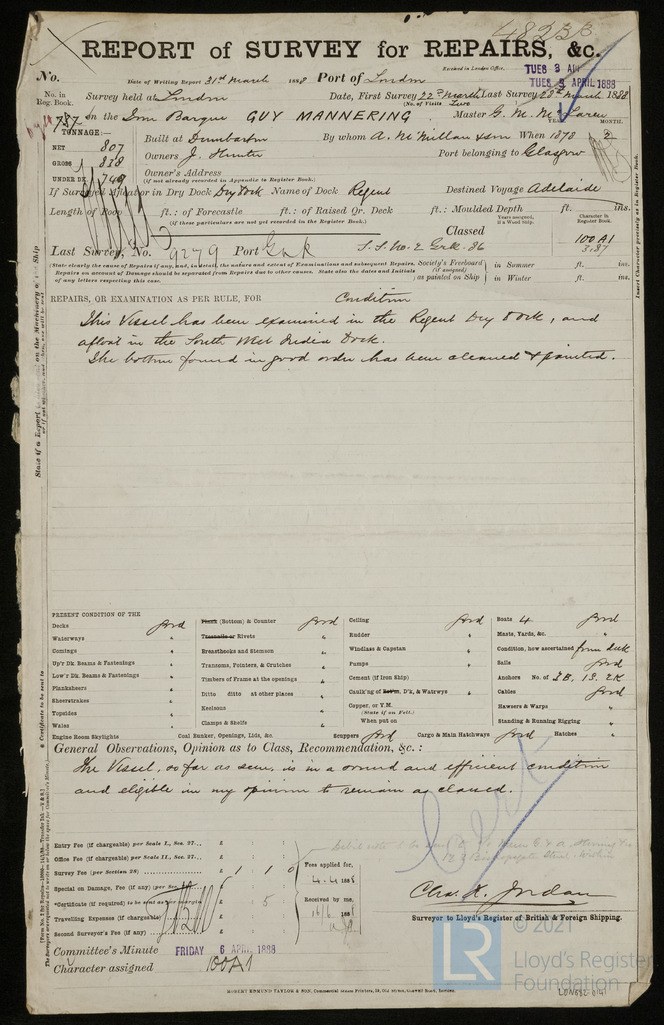 48233
REPORT of SURVEY for REPAIRS, &c.
Received in London Office, TUES 3 APRIL 1888
No. Date of Writing Report 31st March 1888 Port of London
No. in Reg. Book. Survey held at London Date, First Survey 22nd March Last Survey 28th March 1888
(No. of Visits Two)
on the Iron Barque GUY MANNERING Master G. M. McLaren
TONNAGE:—
NET 807
GROSS 838
UNDER DK. 749
Built at Dumbarton By whom A. McMillan & Son When 1878 2
YEAR. MONTH.
Owners J. Hunter Port belonging to Glasgow
Owner's Address
(If not already recorded in Appendix to Register Book.)
If Surveyed Afloat or in Dry Dock Dry Dock Name of Dock Regent Destined Voyage Adelaide
Length of Poop ft.: of Forecastle ft.: of Raised Qr. Deck ft.: Moulded Depth ft. ins.
(if these particulars are not yet recorded in the Register Book.)
Classed
Years assigned, if a Wood Ship.
Character in Register Book.
100 A1
3.87
Last Survey, No. 9279 Port Grk S.S. No. 2 Grk. 86
(State clearly the cause of Repairs if any, and, in detail, the nature and extent of Examinations and subsequent Repairs.
Repairs on account of Damage should be separated from Repairs due to other causes. State also the dates and Initials
of any letters respecting this case.
Society's Freeboard (if assigned) as painted on Ship
in Summer ft. ins.
in Winter ft. ins.
Insert Character precisely as in Register Book.
REPAIRS, OR EXAMINATION AS PER RULE, FOR Condition
This Vessel has been examined in the Regent Dry Dock, and
afloat in the South West India Dock.
The bottom found in good order has been cleaned & painted.
PRESENT CONDITION OF THE
Decks good
Waterways "
Comings "
Up'r Dk. Beams & Fastenings "
Low'r Dk. Beams & Fastenings "
Planksheers "
Sheerstrakes "
Topsides "
Wales "
Engine Room Skylights
Plank (Bottom) & Counter good
Treenails or Rivets "
Breasthooks and Stemson "
Transoms, Pointers, & Crutches "
Timbers of Frame at the openings "
Ditto ditto at other places "
Keelsons "
Clamps & Shelfs "
Coal Bunker, Openings, Lids, &c.
Ceiling good
Rudder "
Windlass & Capstan "
Pumps "
Cement (if Iron Ship) "
Caulk'ng of Bot'm, D'k, & Watrwys "
Copper, or Y.M.
(State if on Felt.)
When put on
Scuppers good
Cargo & Main Hatchways good
Boats 4 good
Masts, Yards, &c. "
Condition, how ascertained from deck
Sails good
Anchors No. of 3B. 1S. 2K
Cables good
Hawsers & Warps "
Standing & Running Rigging "
Hatches "
General Observations, Opinion as to Class, Recommendation, &c.:
The Vessel, so far as seen, is in a sound and efficient condition
and eligible in my opinion to remain as classed.
Cert
Entry Fee (if chargeable) per Scale I., Sec. 27... £ : :
Office Fee (if chargeable) per Scale II., Sec. 27... £ : :
Survey Fee (per Section 28) £ 1 : 1 : 0
Special on Damage, Fee (if any) (per Sec. £ : :
*Certificate (if required) to be sent as per margin £ : 5 :
Travelling Expenses (if chargeable) £ : :
Second Surveyor's Fee (if any) £ : :
Fees applied for, 4.4 1888
Received by me, 16/6 1888
Chas. H. Jordan
Surveyor to Lloyd's Register of British & Foreign Shipping.
Committee's Minute FRIDAY 6 APRIL 1888
Character assigned 100A1
ROBERT EDMUND TAYLOR & SON, Commercial Steam Printers, 19, Old Street, Goswell Road, London.
© 2021
LR
Lloyd's Register
Foundation
LON682-0141